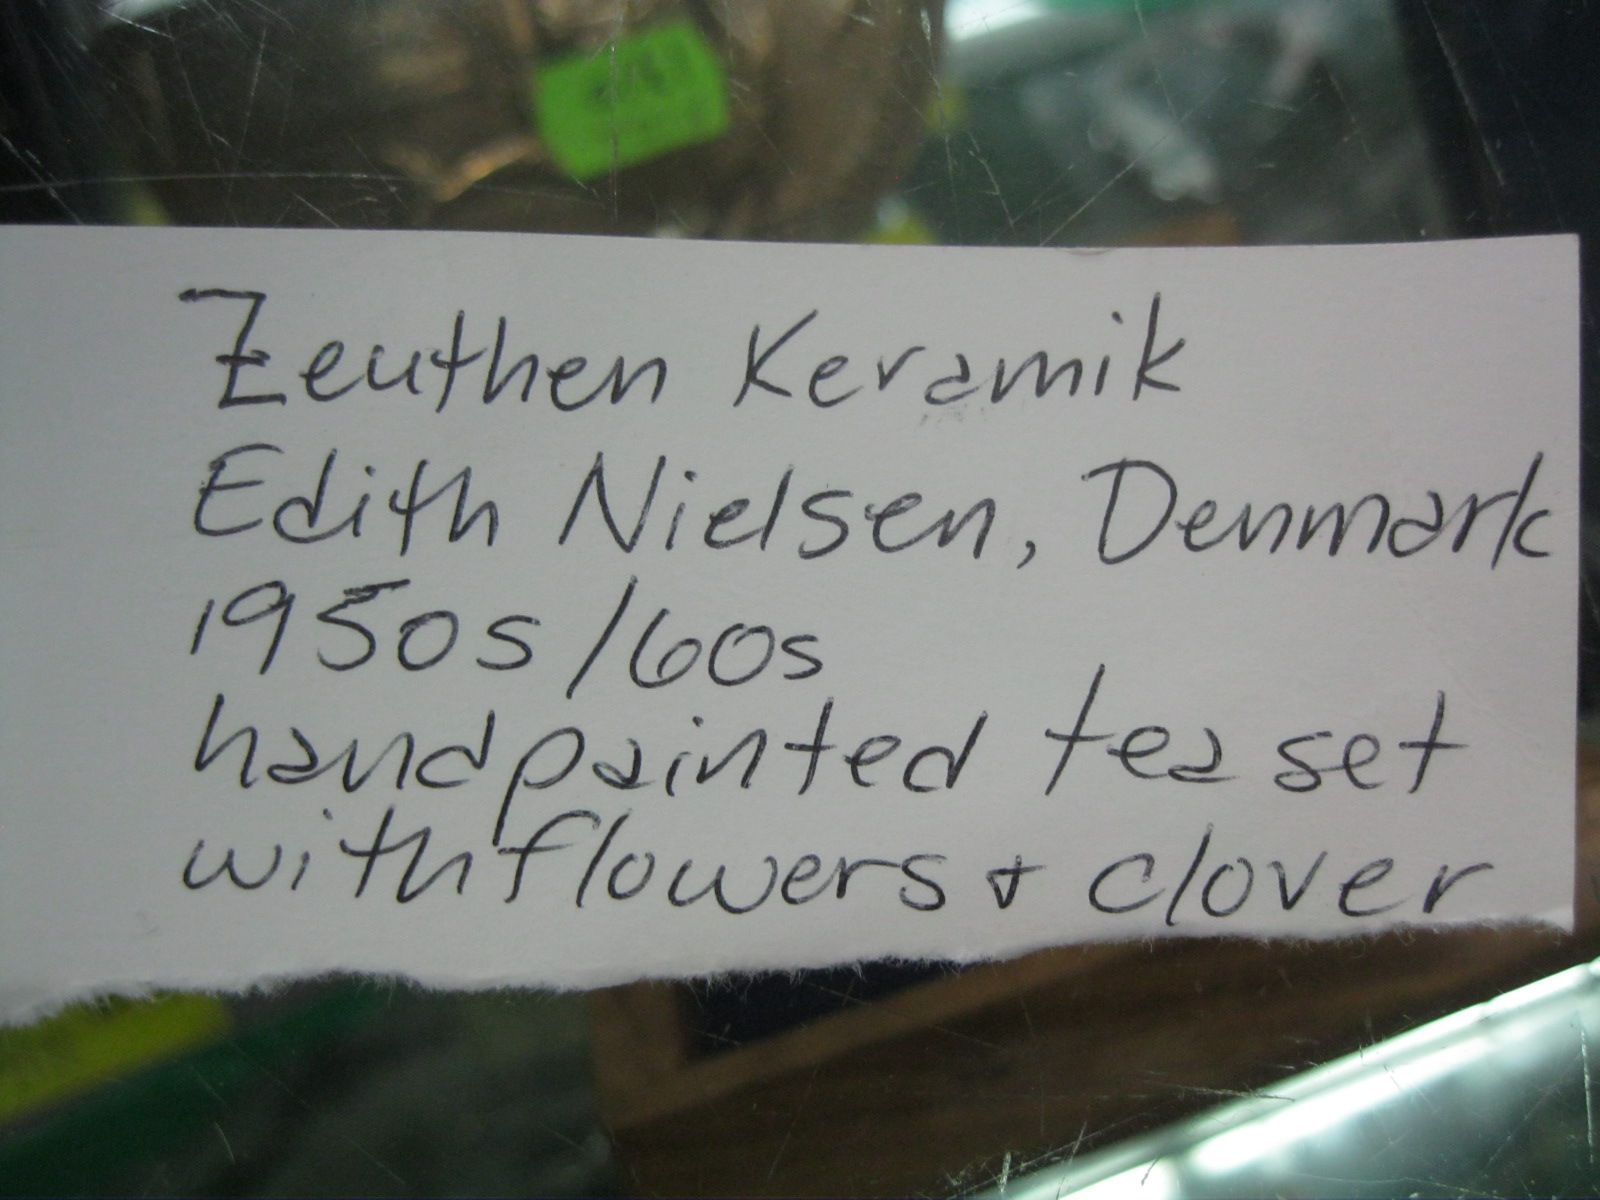 Zeuthen Keramik
Edith Nielsen, Denmark
1950s/60s
handpainted tea set
with flowers + clover